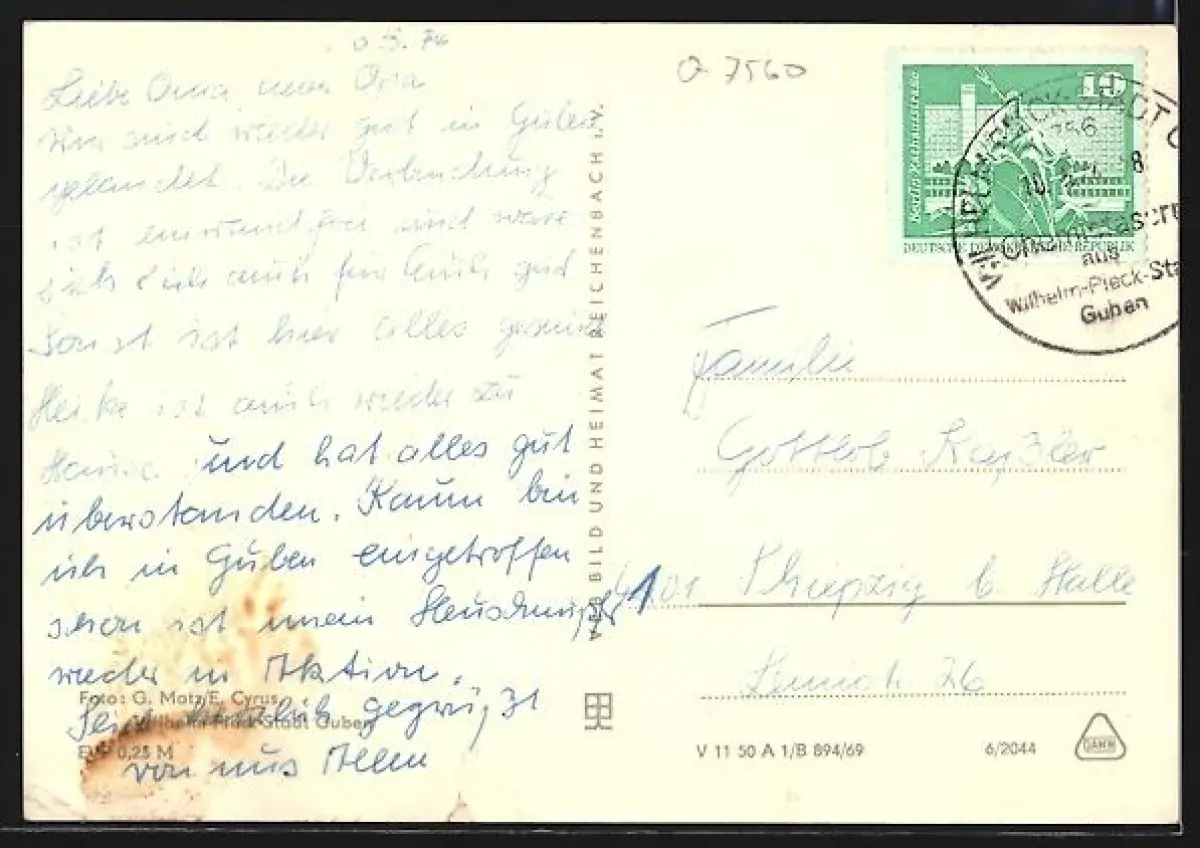 Q 7560
Liebe Oma, unser Opa
Wir sind wieder gut in Guben
gelandet. Die Verbindung
ist einwandfrei und wäre
auch für Euch gut
Sonst ist hier alles gesund
Heike ist auch wieder zu
Hause und hat alles gut
überstanden. Kaum bin
ich in Guben eingetroffen
schon ist mein Heuschnupfen
wieder in Aktion.
Seid herzlich gegrüßt
von uns Allen
Foto: G. Matz/E. Cyrus
Wilhelm-Pieck-Stadt Guben
EVP 0,25 M
VEB BILD UND HEIMAT REICHENBACH I. V.
10
Berlin Rathausstraße
DEUTSCHE DEMOKRATISCHE REPUBLIK
WILHELM-PIECK-STADT G
756
aus
Wilhelm-Pieck-Sta
Guben
Familie
Gottlob
4101 b. Halle
26
V 11 50 A 1/B 894/69
6/2044